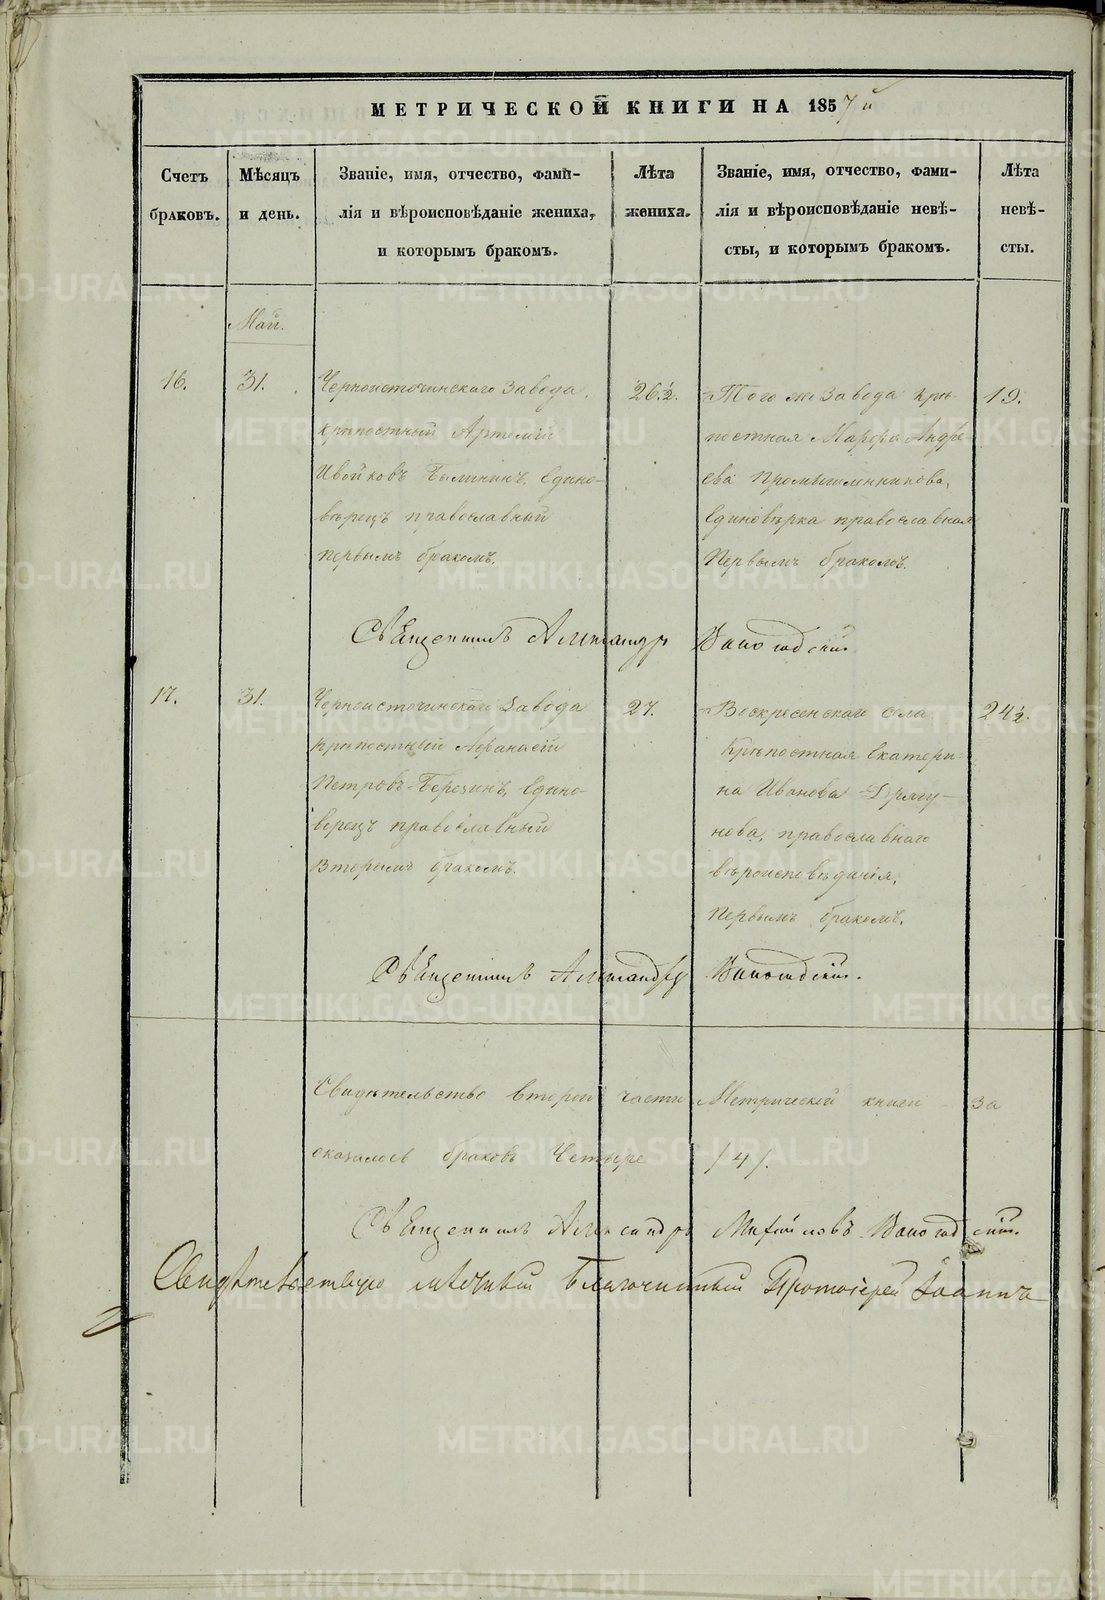 МЕТРИЧЕСКОЙ КНИГИ НА 1857й
Счетъ браковъ.
Мѣсяцъ и день.
Званіе, имя, отчество, фами-
лія и вѣроисповѣданіе жениха,
и которымъ бракомъ.
Лѣта жениха.
Званіе, имя, отчество, фами-
лія и вѣроисповѣданіе невѣ-
сты, и которымъ бракомъ.
Лѣта невѣ-
сты.
Маи.
16.
31.
Черноисточинскаго Завода
крѣпостный Артемій
Ивойловъ Былинин, Едино-
вѣрецъ православный
первымъ бракомъ.
26.½.
Того же Завода Крѣ-
постная Марфа Андре-
ева Промышленникова,
Единовѣрка православная
Первымъ бракомъ.
19.
Священникъ Александръ
17.
31.
Черноисточинскаго Завода
крѣпостный Афанасій
Петровъ Березинъ, Едино-
верецъ православный
Вторымъ бракомъ.
27.
Воскресенскаго села
Крѣпостная Екатери-
на Иванова
православнаго
вѣроисповѣданія,
Первымъ бракомъ.
24½.
Священникъ Александръ
Свидѣтельство второй части Метрической книги за
оказалось браковъ Четыре /4/.
Священникъ Александръ Михайловъ
Свидѣтельствую мѣстный Благочинный Протоіерей Іоаннъ
METRIKI.GASO-URAL.RU